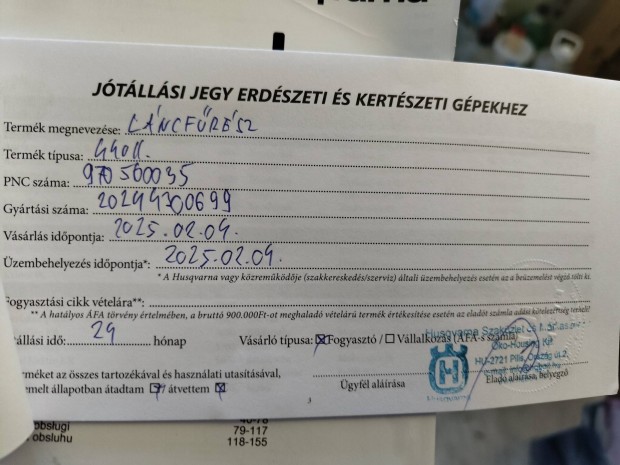 JÓTÁLLÁSI JEGY ERDÉSZETI ÉS KERTÉSZETI GÉPEKHEZ
Termék megnevezése: LÁNCFŰRÉSZ
Termék típusa: 440II.
PNC száma: 970560035
Gyártási száma: 20244300699
Vásárlás időpontja: 2025.02.04.
Üzembehelyezés időpontja*: 2025.02.04.
* A Husqvarna vagy közreműködője (szakkereskedés/szerviz) általi üzembehelyezés esetén az a beüzemelést végző tölti ki.
Fogyasztási cikk vételára**:
** A hatályos ÁFA törvény értelmében, a bruttó 900.000Ft-ot meghaladó vételárú termék értékesítése esetén az eladót számla adási kötelezettség terheli!
állási idő: 24 hónap Vásárló típusa: ☒ Fogyasztó / ☐ Vállalkozás (ÁFA-s számla)
Husqvarna Szaküzlet
Öko-Housing Kft
HU-2721 Pilis, Ország út 2.
rméket az összes tartozékával és használati utasításával,
emelt állapotban átadtam ☒ átvettem ☒
Ügyfél aláírása Eladó aláírása, bélyegző
H
Husqvarna
obsługi 79-117
obsluhu 118-155